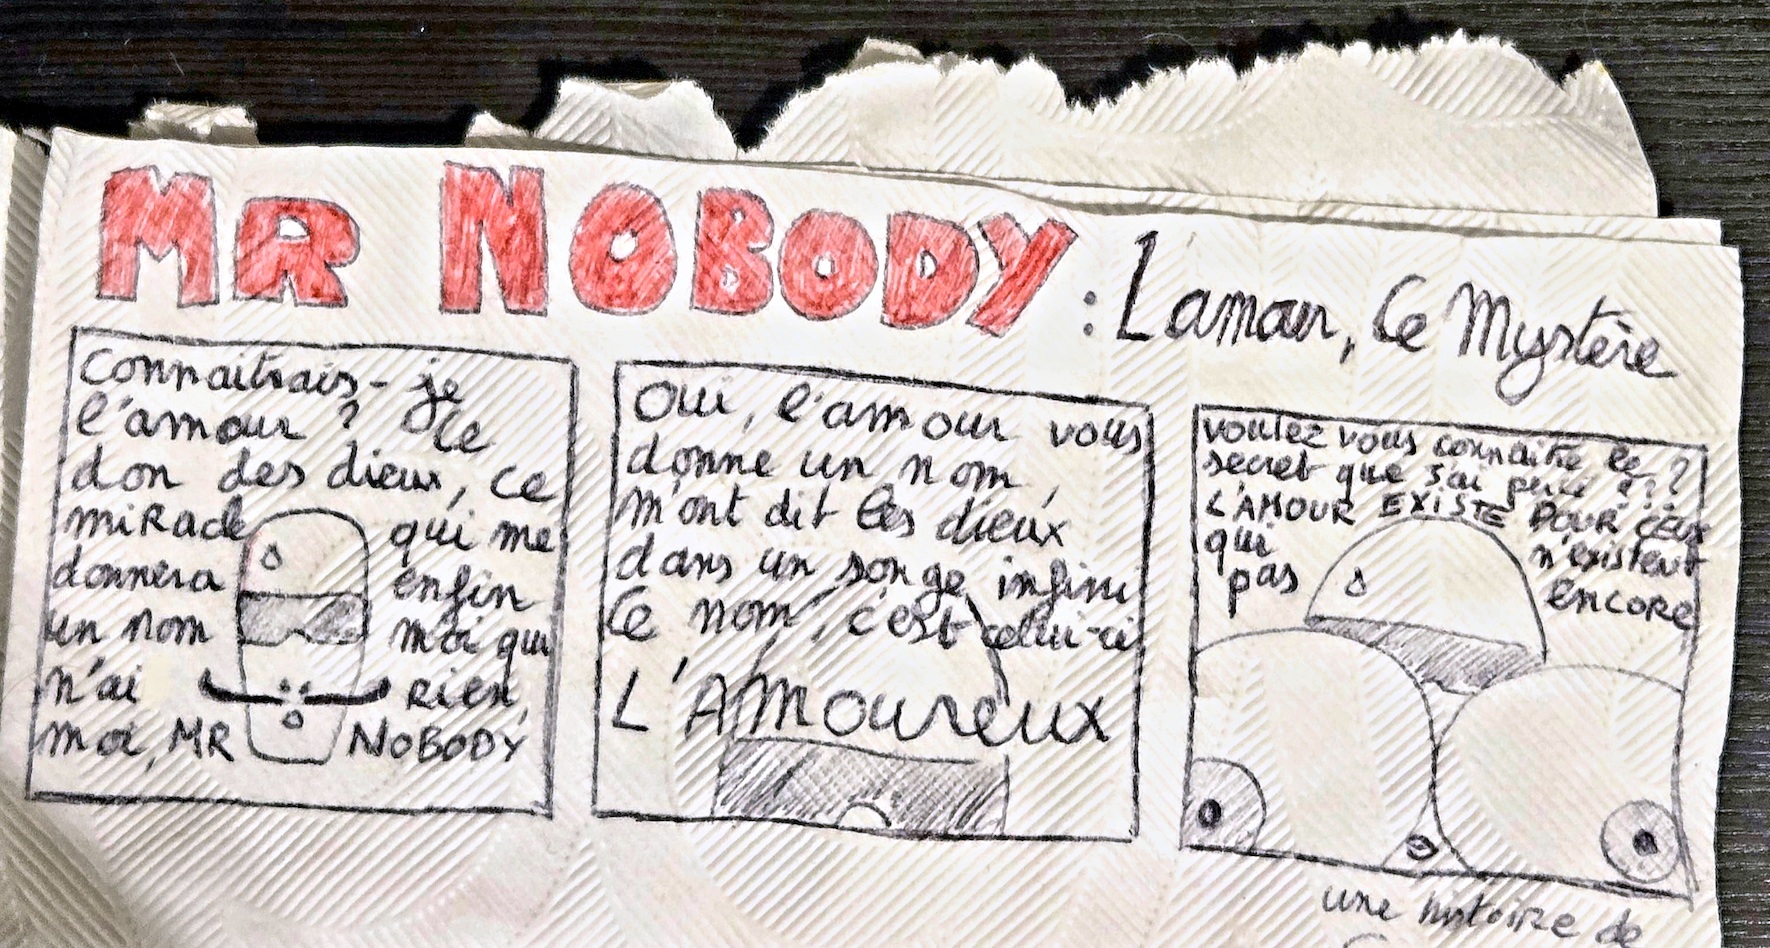 MR NOBODY : L'amour, Ce Mystère
Connaitrais-je
l'amour ? Ce
don des dieux, ce
miracle qui me
donnera enfin
un nom moi qui
n'ai rien,
moi, MR NOBODY
Oui, l'amour vous
donne un nom,
m'ont dit les dieux
dans un songe infini
Ce nom, c'est celui-ci
L'AMoureux
voulez vous connaitre le
secret que j'ai percé ???
L'AMOUR EXISTE POUR CEUX
qui n'existent
pas encore
une histoire de